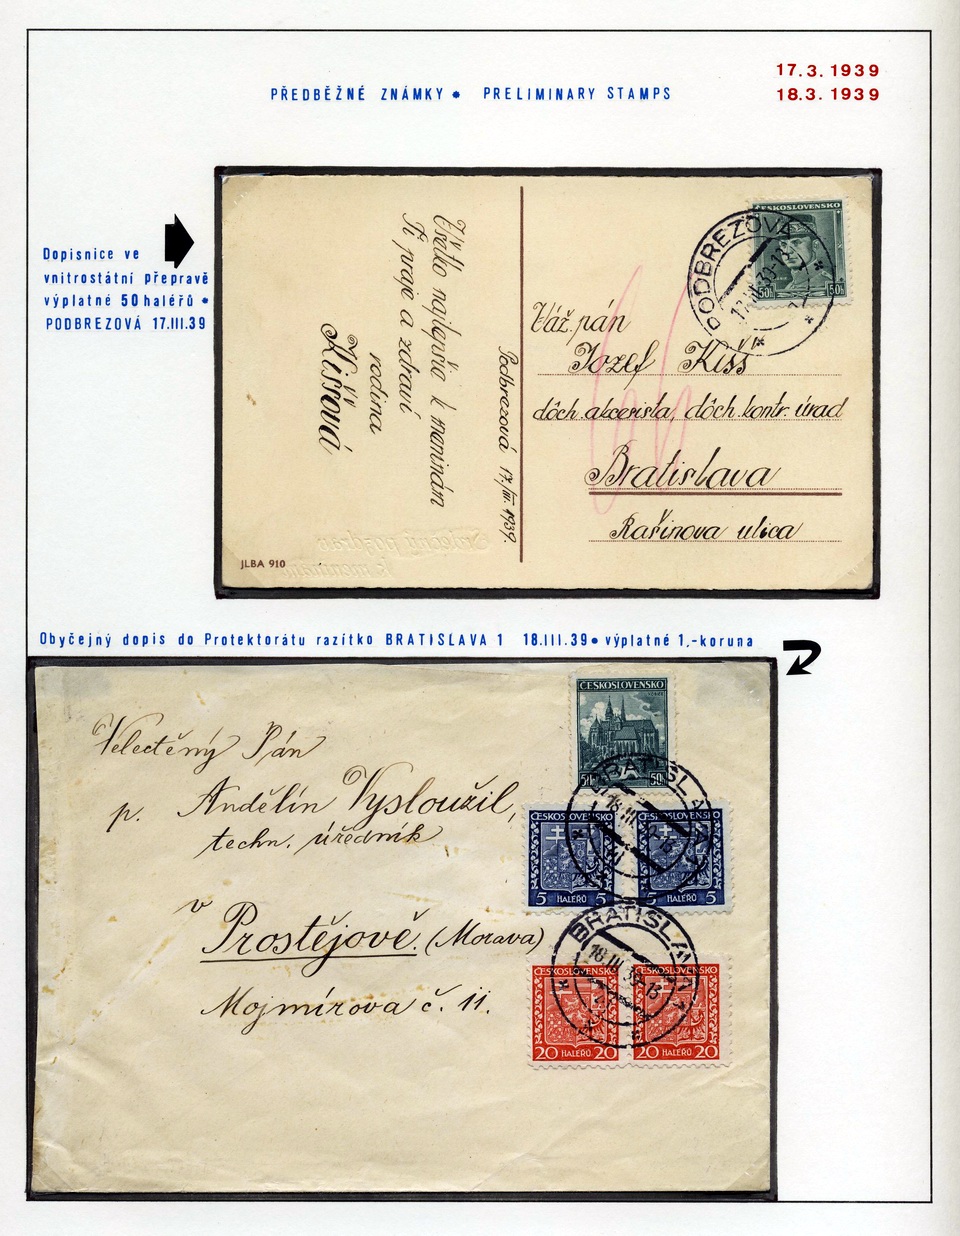 17.3.1939
18.3.1939
PŘEDBĚŽNÉ ZNÁMKY * PRELIMINARY STAMPS
Dopisnice ve
vnitrostátní přepravě
výplatné 50 haléřů *
PODBREZOVÁ 17.III.39
ČESKOSLOVENSKO
50h 50h
PODBREZOVÁ
17.III.39
Váž. pán
Jozef Kišš
dôch. akcesista, dôch. kontr. úrad
Bratislava
Rašínova ulica
Podbrezová 17./III. 1939.
Všetko najlepšie k meninám
Ti praje a zdraví
rodina
Kiššová
Srdečný pozdrav
k meninám
JLBA 910
Obyčejný dopis do Protektorátu razítko BRATISLAVA 1 18.III.39 * výplatné 1,-koruna
ČESKOSLOVENSKO
50h 50h
BRATISLAVA
18.III.39-13
ČESKOSLOVENSKO ČESKOSLOVENSKO
5 HALEŘŮ 5 5 HALEŘŮ 5
BRATISLAVA
18.III.39-13
ČESKOSLOVENSKO ČESKOSLOVENSKO
20 HALEŘŮ 20 20 HALEŘŮ 20
Velectěný Pán
p. Andělín Vysloužil,
techn. úředník
v
Prostějově. (Morava)
Mojmírova č. 11.